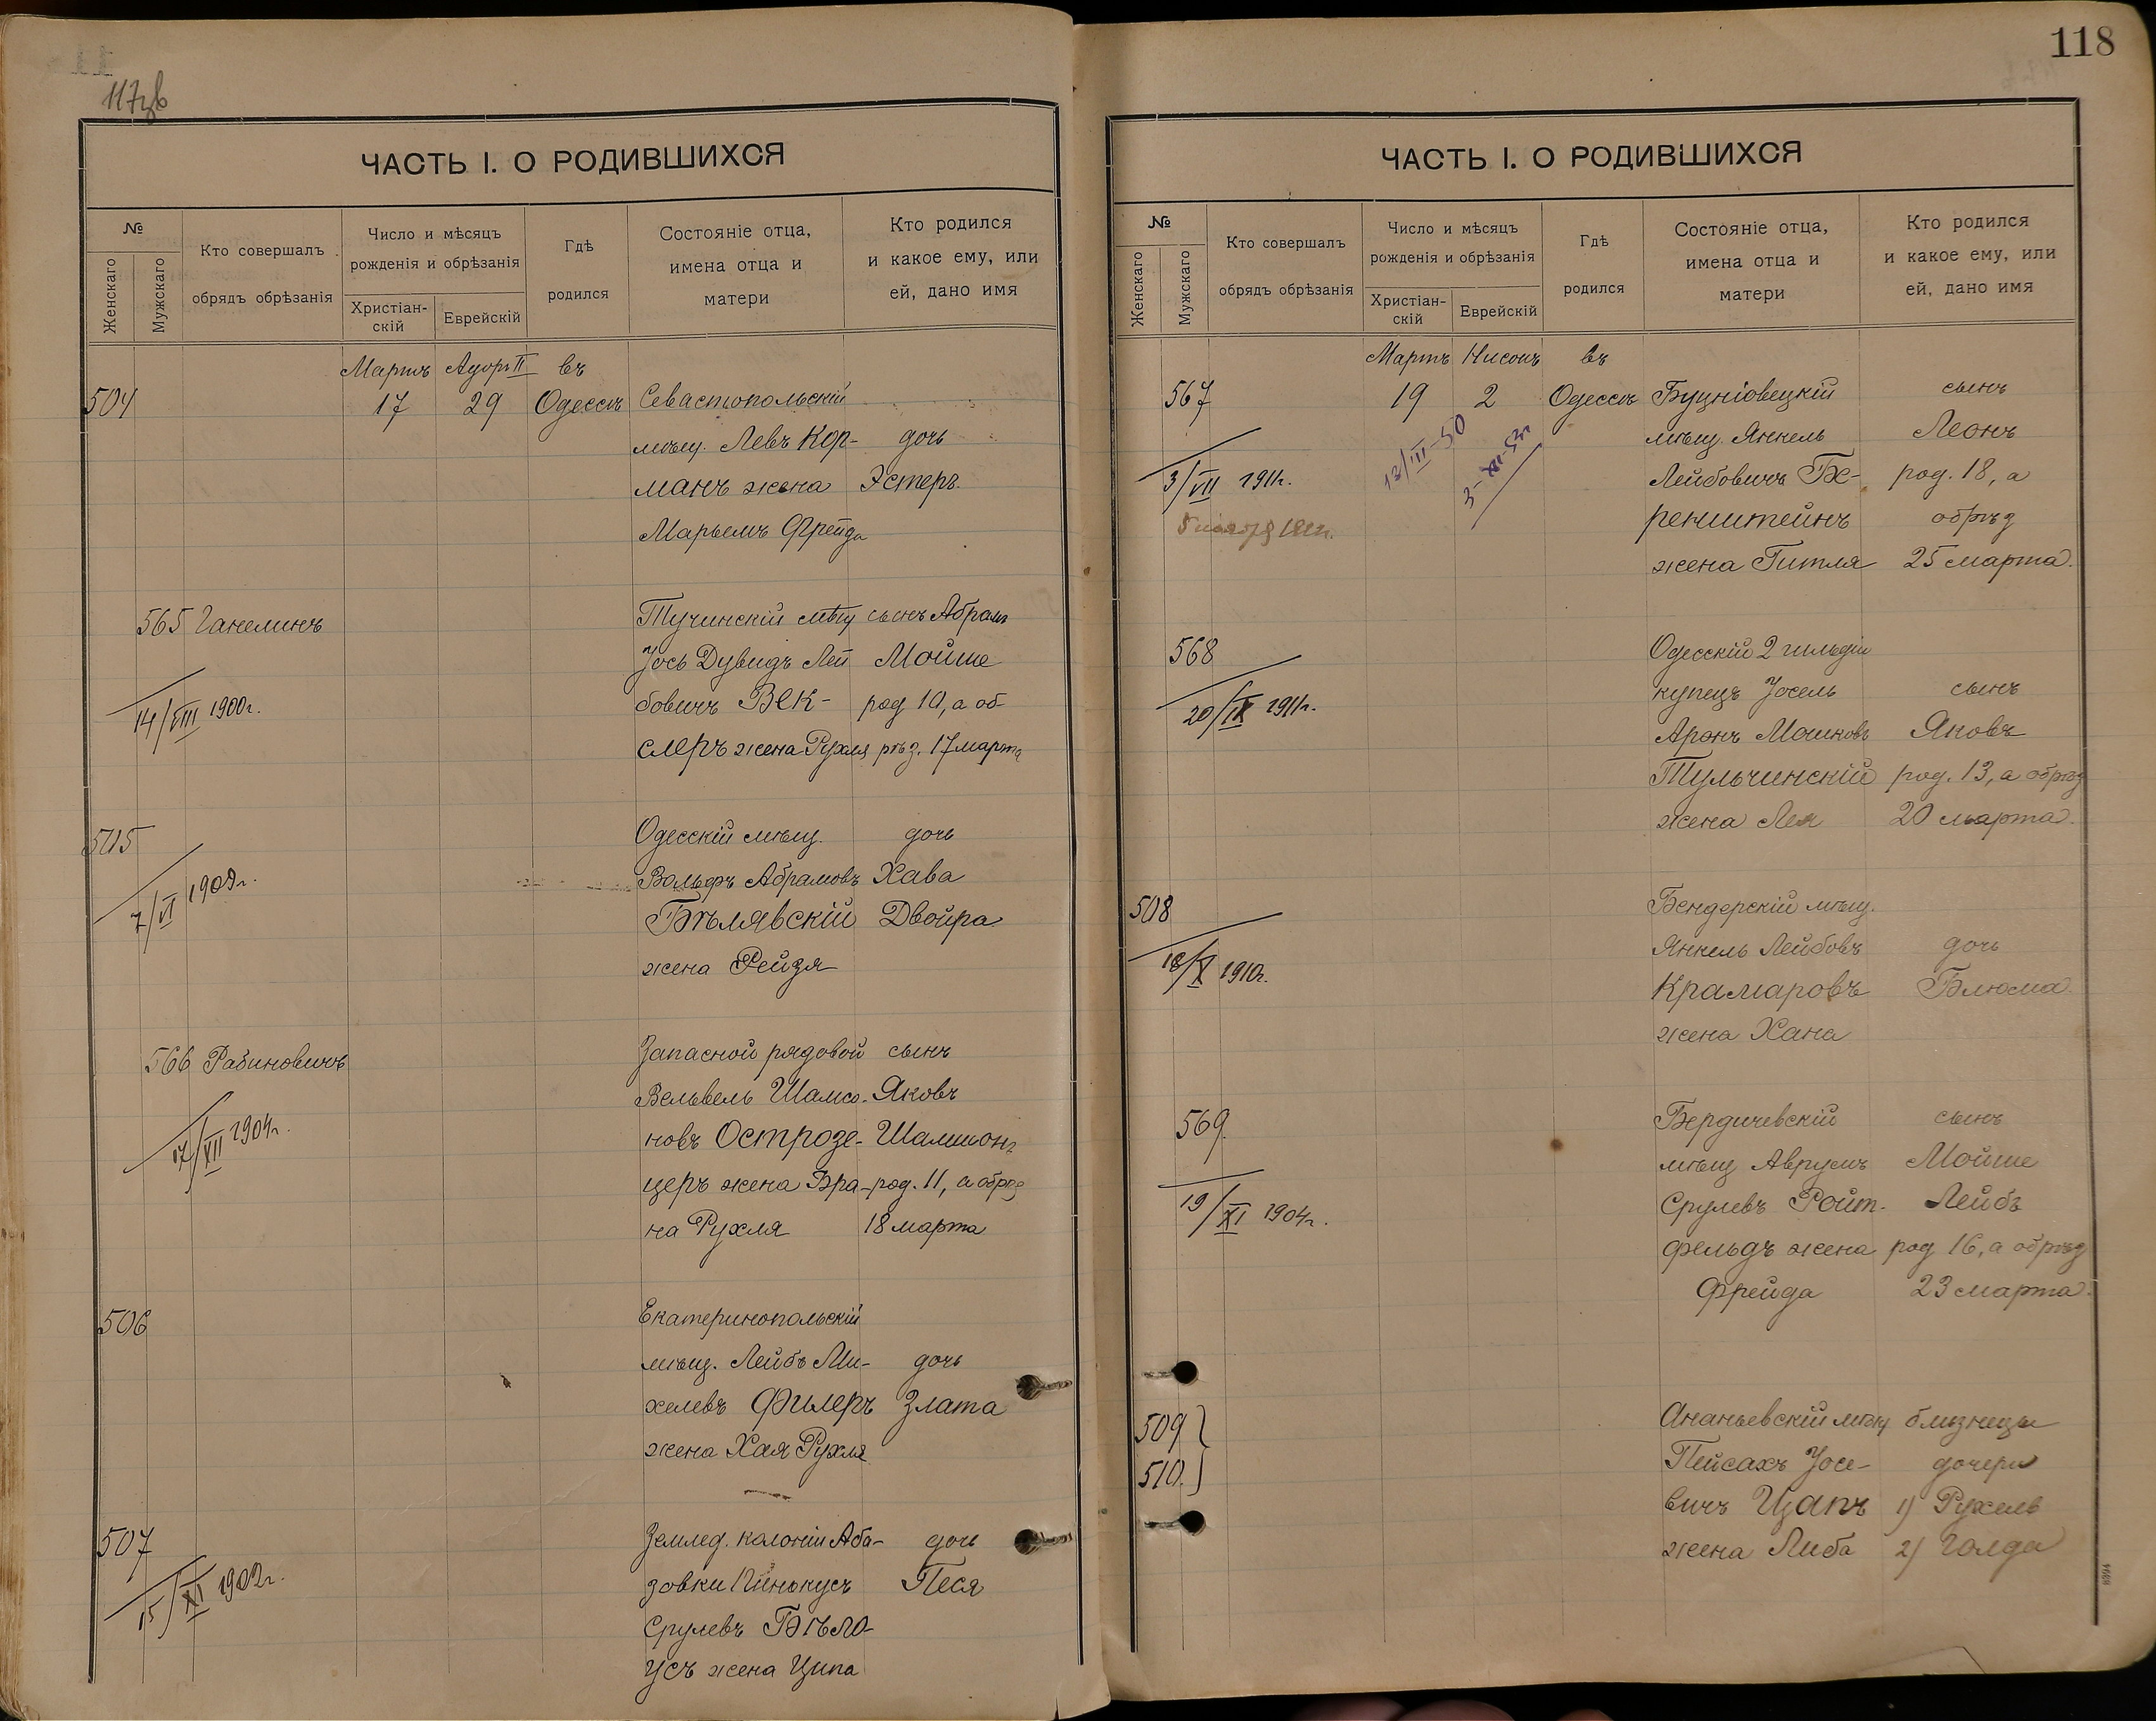 117 зв
ЧАСТЬ I. О РОДИВШИХСЯ
№
Женскаго
Мужскаго
Кто совершалъ
обрядъ обрѣзанія
Число и мѣсяцъ
рожденія и обрѣзанія
Христіан-
скій
Еврейскій
Гдѣ
родился
Состояніе отца,
имена отца и
матери
Кто родился
и какое ему, или
ей, дано имя
Мартъ Адоръ II въ
504 17 29 Одессѣ Севастопольскій
мѣщ. Левъ Кор- дочь
манъ жена Эстеръ.
Марьемъ Фрейда
565 Ганелинъ Тучинскій мѣщ сынъ Абрамъ
Іось Дувидъ Лей Мойше
14/VIII 1900г. бовичъ Век- род 10, а об-
слеръ жена Рухля рѣз. 17 марта
505 Одесскій мѣщ. дочь
7/VI 1909г. Вольфъ Абрамовъ Хава
Бѣлявскій Двойра
жена Рейзя
566 Рабиновичъ Запасной рядовой сынъ
Вельвель Шамсо- Яковъ
17/XII 1904г. новъ Острозе- Шамшонъ
церъ жена Бра- род. 11, а обрѣз
на Рухля 18 марта
506 Екатеринопольскій
мѣщ. Лейбъ Ми- дочь
хелевъ Филеръ Злата
жена Хая Рухля
507 Землед. колоніи Аба- дочь
15/XI 1902г. зовки Пинькусъ Песя
Срулевъ Бѣло-
усъ жена Ципа
118
ЧАСТЬ I. О РОДИВШИХСЯ
№
Женскаго
Мужскаго
Кто совершалъ
обрядъ обрѣзанія
Число и мѣсяцъ
рожденія и обрѣзанія
Христіан-
скій
Еврейскій
Гдѣ
родился
Состояніе отца,
имена отца и
матери
Кто родился
и какое ему, или
ей, дано имя
Мартъ Нисонъ въ
567 19 2 Одессѣ Буцніовецкій сынъ
мѣщ. Янкель Леонъ
3/VII 1911г. 13/III-50 Лейбовичъ Бе- род. 18, а
ренштейнъ обрѣз
жена Гитля 25 марта.
568 Одесскій 2 гильдіи
20/IX 1911г. купецъ Іосель сынъ
Аронъ Мошковъ Яковъ
Тульчинскій род. 13, а обрѣз
жена Лея 20 марта.
508 Бендерскій мѣщ.
Янкель Лейбовъ дочь
18/X 1910г. Крамаровъ Блюма
жена Хана
569. Бердичевскій сынъ
мѣщ Аврумъ Мойше
19/XI 1904г. Срулевъ Ройт- Лейбъ
фельдъ жена род 16, а обрѣз
Фрейда 23 марта.
509 Ананьевскій мѣщ близнецы
510. Пейсахъ Іосе- дочери
вичъ Цапъ 1) Рухель
жена Либа 2) Голда